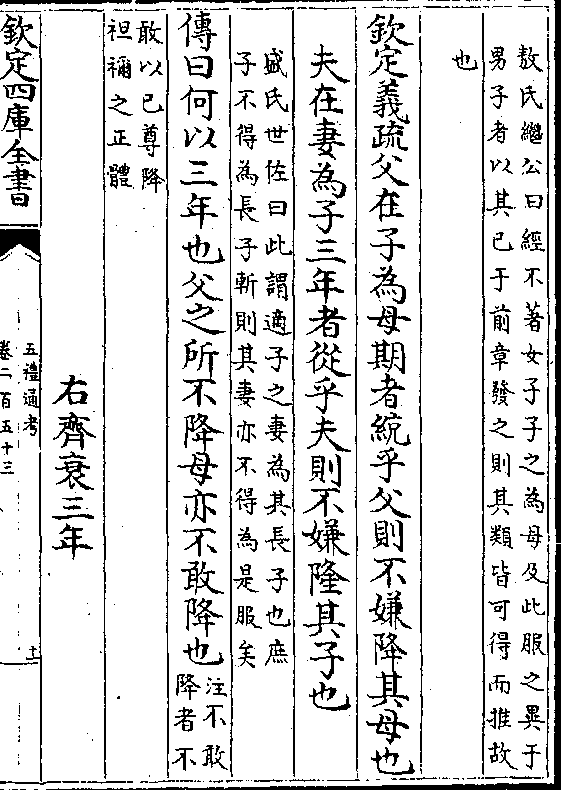 敖氏繼公曰經不著女子子之為母及此服之異于
男子者以其已于前章發之則其類皆可得而推故
也
欽定義疏父在子為母期者統乎父則不嫌降其母也
夫在妻為子三年者從乎夫則不嫌隆其子也
盛氏世佐曰此謂適子之妻為其長子也庶
子不得為長子斬則其妻亦不得為是服矣
傳曰何以三年也父之所不降母亦不敢降也注不敢
降者不
敢以已尊降
袒禰之正體
右齊衰三年
欽定四庫全書
五禮通考
卷二百五十三
十一